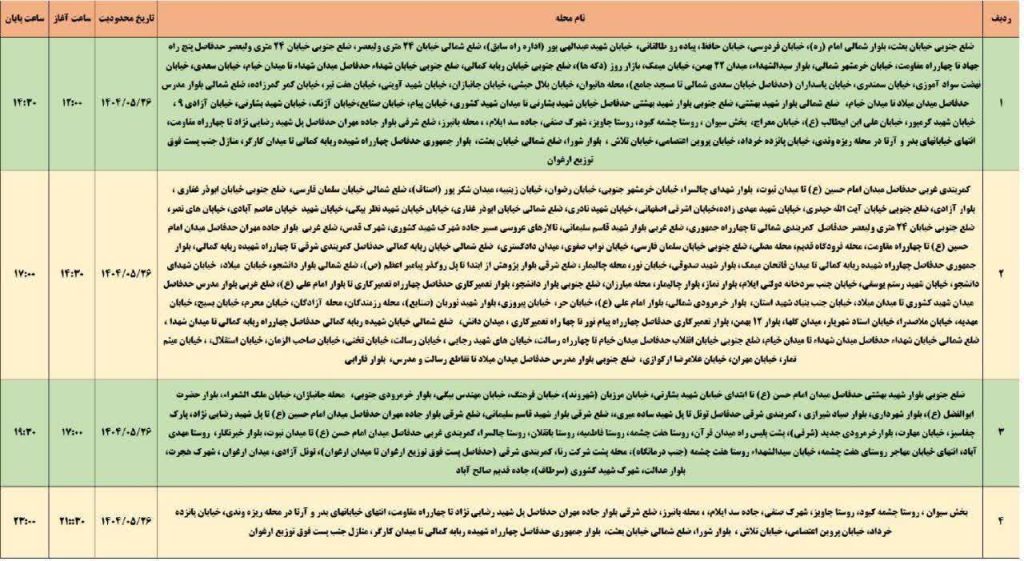 ردیف نام محله تاریخ محدودیت ساعت آغاز ساعت پایان
ضلع جنوبی خیابان بعثت، بلوار شمالی امام (ره)، خیابان فردوسی، خیابان حافظ، پیاده رو طالقانی، خیابان شهید عبدالهی پور (اداره راه سابق)، ضلع شمالی خیابان ۲۴ متری ولیعصر، ضلع جنوبی خیابان ۲۴ متری ولیعصر حدفاصل پنج راه
جهاد تا چهارراه مقاومت، خیابان خرمشهر شمالی، بلوار سیدالشهداء، میدان ۲۲ بهمن، خیابان میمک، بازار روز (دکه ها)، ضلع جنوبی خیابان ربابه کمالی، ضلع جنوبی خیابان شهداء حدفاصل میدان شهداء تا میدان خیام، خیابان سعدی، خیابان
نهضت سواد آموزی، خیابان سمندری، خیابان پاسداران (حدفاصل خیابان سعدی شمالی تا مسجد جامع)، محله هانیوان، خیابان بلال حبشی، خیابان جانبازان، خیابان شهید آوینی، خیابان هفت تیر، خیابان کمر کمرزاده، ضلع شمالی بلوار مدرس
حدفاصل میدان میلاد تا میدان خیام، ضلع شمالی بلوار شهید بهشتی، ضلع جنوبی بلوار شهید بهشتی حدفاصل خیابان شهید بشارتی تا میدان شهید کشوری، خیابان پیام، خیابان صنایع، خیابان آژنگ، خیابان شهید بشارتی، خیابان آزادی ۹ ،
خیابان شهید کرمپور، خیابان علی ابن ابیطالب (ع)، خیابان معراج، بخش سیوان ، روستا چشمه کبود، روستا چاویز، شهرک صنفی، جاده سد ایلام، ، محله بانبرز، ضلع شرقی بلوار جاده مهران حدفاصل پل شهید رضایی نژاد تا چهارراه مقاومت،
انتهای خیابانهای بدر و آرتا در محله ریزه وندی، خیابان پانزده خرداد، خیابان پروین اعتصامی، خیابان تلاش ، بلوار شورا، ضلع شمالی خیابان بعثت، بلوار جمهوری حدفاصل چهارراه شهیده ربابه کمالی تا میدان کارگر، منازل جنب پست فوق
توزیع ارغوان
۱ ۱۴۰۴/۰۵/۲۶ ۱۲:۰۰ ۱۴:۳۰
کمربندی غربی حدفاصل میدان امام حسین (ع) تا میدان نبوت، بلوار شهدای چالسرا، خیابان خرمشهر جنوبی، خیابان رضوان، خیابان زینبیه، میدان شکر پور (اصناف)، ضلع شمالی خیابان سلمان فارسی، ضلع جنوبی خیابان ابوذر غفاری ،
بلوار آزادی، ضلع جنوبی خیابان آیت الله حیدری، خیابان شهید مهدی زاده،خیابان اشرفی اصفهانی، خیابان شهید نادری، ضلع شمالی خیابان ابوذر غفاری، خیابان خیابان شهید نظر بیگی، خیابان شهید خیابان عاصم آبادی، خیابان های نصر،
ضلع جنوبی خیابان ۲۴ متری ولیعصر حدفاصل کمربندی شمالی تا چهارراه جمهوری، ضلع غربی بلوار شهید قاسم سلیمانی، تالارهای عروسی مسیر جاده شهرک شهید کشوری، شهرک قدس، ضلع غربی بلوار جاده مهران حدفاصل میدان امام
حسین (ع) تا چهارراه مقاومت، محله فرودگاه قدیم، محله مصلی، ضلع جنوبی خیابان سلمان فارسی، خیابان نواب صفوی، میدان دادگستری، ضلع شمالی خیابان ربابه کمالی حدفاصل کمربندی شرقی تا چهارراه شهیده ربابه کمالی، بلوار
جمهوری حدفاصل چهارراه شهیده ربابه کمالی تا میدان فاتحان میمک، بلوار شهید صدوقی، خیابان نور، محله چالیمار، ضلع شرقی بلوار پژوهش از ابتدا تا پل روگذر پیامبر اعظم (ص)، ضلع شمالی بلوار دانشجو، خیابان میلاد، خیابان شهدای
دانشجو، خیابان شهید رستم یوسفی، خیابان جنب سردخانه دولتی ایلام، بلوار نماز، بلوار چالیمار، محله مبارزان، ضلع جنوبی بلوار دانشجو، بلوار تعمیرکاری حدفاصل چهارراه تعمیرکاری تا بلوار امام علی (ع)، ضلع غربی بلوار مدرس حدفاصل
میدان شهید کشوری تا میدان میلاد، خیابان جنب بنیاد شهید استان، بلوار خرمرودی شمالی، بلوار امام علی (ع)، خیابان حر، خیابان پیروزی، بلوار شهید نوریان (صنایع)، محله رزمندگان، محله آزادگان، خیابان محرم، خیابان بسیج، خیابان
مهدیه، خیابان ملاصدرا، خیابان استاد شهریار، میدان گلها، بلوار ۱۲ بهمن، بلوار تعمیرکاری حدفاصل چهارراه پیام نور تا چها راه تعمیرکاری ، میدان دانش، ضلع شمالی خیابان شهیده ربابه کمالی حدفاصل چهارراه ربابه کمالی تا میدان شهدا ،
ضلع شمالی خیابان شهداء حدفاصل میدان شهداء تا میدان خیام، ضلع جنوبی خیابان انقلاب حدفاصل میدان خیام تا چهارراه رسالت، خیابان های شهید رجایی ، خیابان رسالت، خیابان تختی، خیابان صاحب الزمان، خیابان استقلال، ، خیابان میثم
تمار، خیابان مهران، خیابان غلامرضا ارکوازی، ضلع جنوبی بلوار مدرس حدفاصل میدان میلاد تا تقاطع رسالت و مدرس، بلوار فارابی
۲ ۱۴۰۴/۰۵/۲۶ ۱۴:۳۰ ۱۷:۰۰
ضلع جنوبی بلوار شهید بهشتی حدفاصل میدان امام حسن (ع) تا ابتدای خیابان شهید بشارتی، خیابان مرزبان (شهروند)، خیابان فرهنگ، خیابان مهندس بیگی، بلوار خرمرودی جنوبی، محله جانبازان، خیابان ملک الشعراء، بلوار حضرت
ابوالفضل (ع)، بلوار شهرداری، بلوار صیاد شیرازی ، کمربندی شرقی حدفاصل تونل تا پل شهید ساده میری،، ضلع شرقی بلوار شهید قاسم سلیمانی، ضلع شرقی بلوار جاده مهران حدفاصل میدان امام حسین (ع) تا پل شهید رضایی نژاد، پارک
چغاسبز، خیابان مهارت، بلوارخرمرودی جدید (شرقی)، پشت پلیس راه میدان قرآن، روستا هفت چشمه، روستا فاطمیه، روستا بانقلان، روستا چالسرا، کمربندی غربی حدفاصل میدان امام حسن (ع) تا میدان نبوت، بلوار خبرنگار، روستا مهدی
آباد، انتهای خیابان مهاجر روستای هفت چشمه، خیابان سیدالشهداء روستا هفت چشمه (جنب درمانگاه)، محله پشت شرکت رنا، کمربندی شرقی (حدفاصل پست فوق توزیع ارغوان تا میدان ارغوان)، تونل آزادی، میدان ارغوان ، شهرک هجرت،
بلوار عدالت، شهرک شهید کشوری (سرطاف)، جاده قدیم صالح آباد
۳ ۱۴۰۴/۰۵/۲۶ ۱۷:۰۰ ۱۹:۳۰
بخش سیوان ، روستا چشمه کبود، روستا چاویز، شهرک صنفی، جاده سد ایلام، ، محله بانبرز، ضلع شرقی بلوار جاده مهران حدفاصل پل شهید رضایی نژاد تا چهارراه مقاومت، انتهای خیابانهای بدر و آرتا در محله ریزه وندی، خیابان پانزده
خرداد، خیابان پروین اعتصامی، خیابان تلاش ، بلوار شورا، ضلع شمالی خیابان بعثت، بلوار جمهوری حدفاصل چهارراه شهیده ربابه کمالی تا میدان کارگر، منازل جنب پست فوق توزیع ارغوان
۴ ۱۴۰۴/۰۵/۲۶ ۲۱::۳۰ ۲۳:۰۰